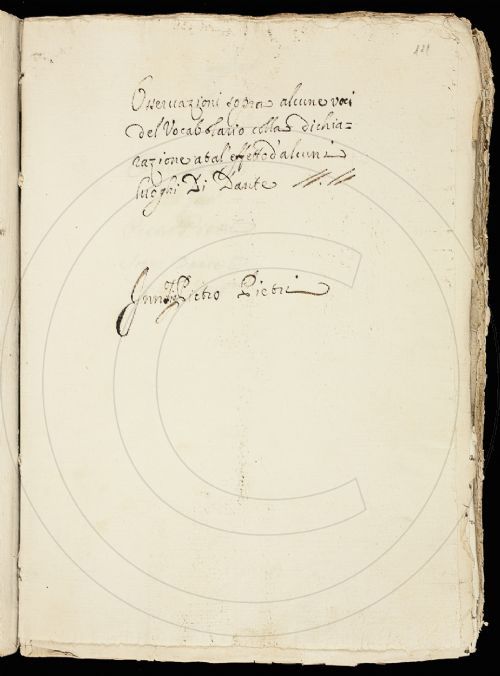 121
Osservazioni sopra alcune voci
del Vocabolario colla dichia=
razione a tal' effetto d'alcuni
luoghi Di Dante
Pietro Pietri